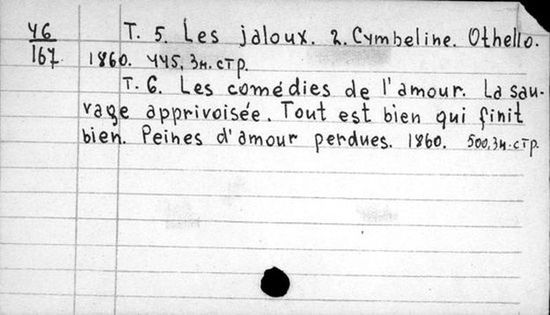 46 Т. 5. Les jaloux. 2. Cymbeline. Othello.
167 1860. 445, 3н. стр.
Т. 6. Les comédies de l'amour. La sau-
vage apprivoisée. Tout est bien qui finit
bien. Peines d'amour perdues. 1860. 500, 3н. стр.